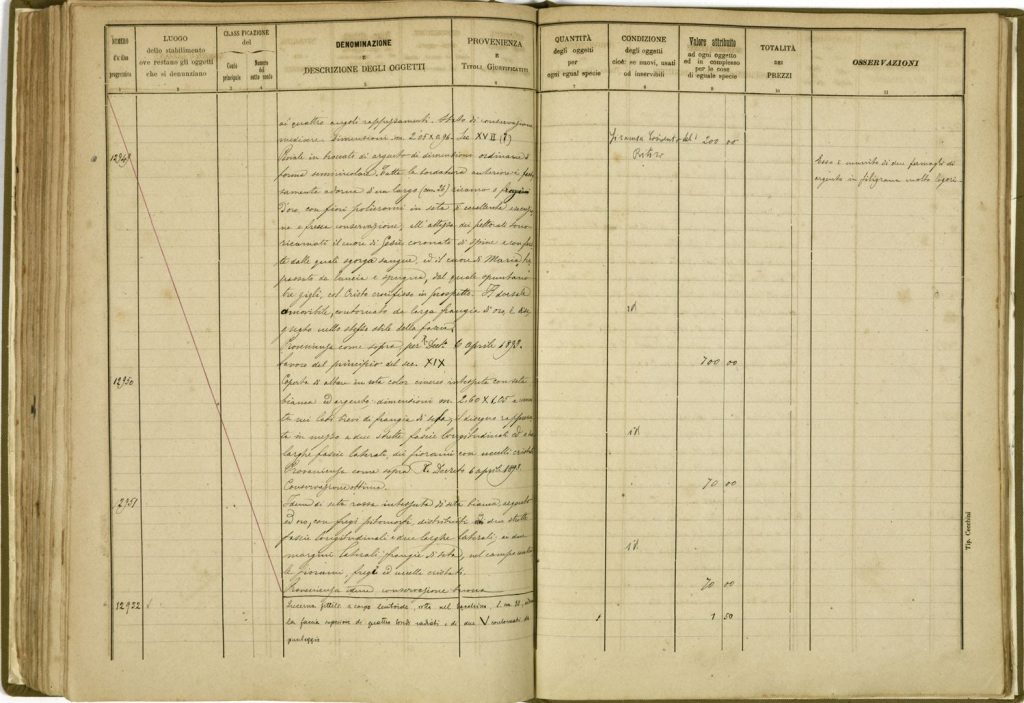 NUMERO
d'ordine
progressivo
LUOGO
dello stabilimento
ove restano gli oggetti
che si denunziano
CLASSIFICAZIONE
del
Conto
principale
Numero
del
sotto conto
DENOMINAZIONE
E
DESCRIZIONE DEGLI OGGETTI
PROVENIENZA
E
TITOLI GIUSTIFICATIVI
QUANTITÀ
degli oggetti
per
ogni egual specie
CONDIZIONE
degli oggetti
cioè: se nuovi, usati
od inservibili
Valore attribuito
ad ogni oggetto
ed in complesso
per le cose
di eguale specie
TOTALITÀ
DEI
PREZZI
OSSERVAZIONI
1 2 3 4 5 6 7 8 9 10 11
ai quattro angoli Stato di conservazione
mediocre. Dimensioni m. 2.05 x 0.96. Sec XVII (?) 200 00
Piviale in broccato di argento di dimensioni ordinarie e
forma semicircolare. Tutta la bordatura anteriore è
adorna d'un largo (cm. 26) ricamo a
d'oro con fiori policromi in seta di eccellente
e fresca conservazione; all'altezza dei pettorali sono
ricamati il cuore di Gesù coronato di spine e con
te dalle quali sgorga sangue, ed il cuore di Maria,
passato da lancia e dal quale spuntano
tre gigli, col Cristo crocifisso in prospetto. Il dorsale
amovibile, contornato da larga frangia d'oro, è
nello stesso stile della fascia.
Provenienza come sopra, per R. Decr. 6 aprile 1898.
lavoro del principio del sec. XIX 700 00
Essa è munita di due fermagli di
argento in filigrana molto
id
12950
Coperta di altare in seta color cinereo intessuta con seta
bianca ed argento: dimensioni m. 2.60 x 1.05
ta nei lati brevi da frangia di seta; il disegno
ta in mezzo a due strette fascie longitudinali ed a due
larghe fascie laterali, dei fiorami con uccelli
Provenienza come sopra R. Decreto 6 aprile 1898.
Conservazione ottima. 70 00
id
12951
Idem di seta rossa intessuta di seta bianca, argento
ed oro, con fregi fitomorfi, distribuiti in due strette
fascie longitudinali e due larghe laterali; ai due
margini laterali frangie di seta; nel campo
fiorami, fregi ed uccelli
id
Provenienza idem conservazione buona 70 00
12952
Lucerna fittile a corpo lenticolare, rotta nel
la faccia superiore di quattro tondi radiati e di due V contornati da
punteggio
1 1 50
Tip. Cecchini